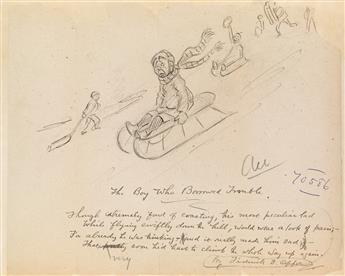 70586
The Boy Who Borrowed Trouble.
Though extremely fond of coasting, this most peculiar lad
While flying swiftly down the hill, would wear a look of pain;—
For already he was thinking—(and it really made him sad)—
That soon he'd have to climb the whole way up again.
very
By Frederick B. Opper